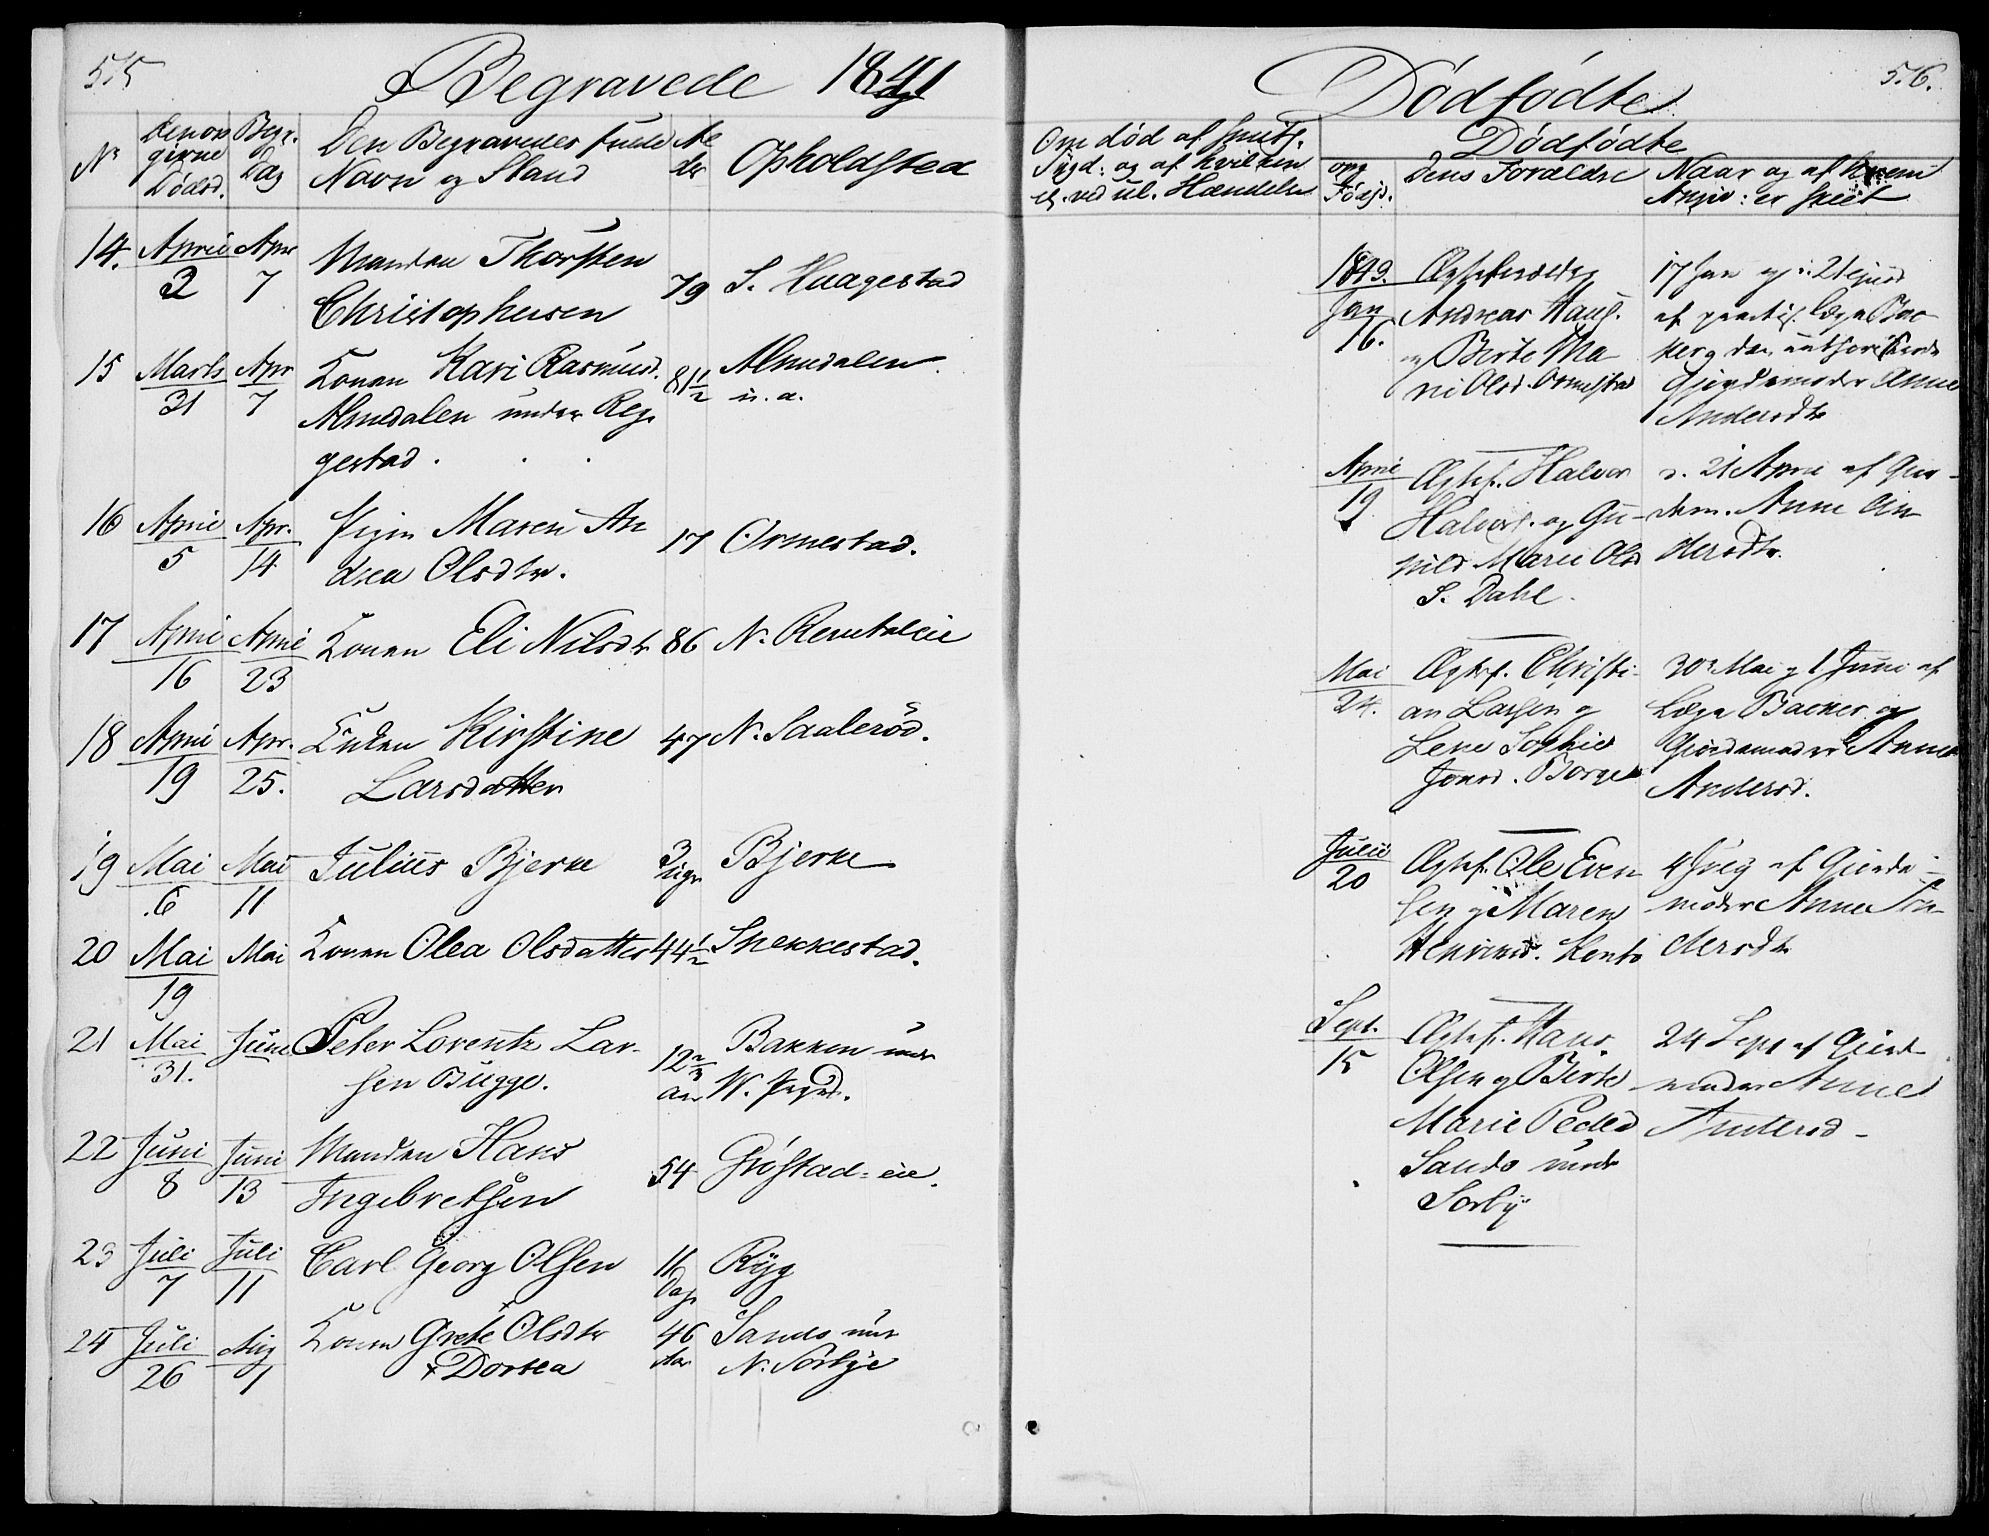 55
Begravede 1841
N
Den op
givne
Dødsd.
Begr.
Dag
Den Begravedes fulde
Navn og Stand
Al
der
Opholdsted
14. April 2 Apr 7 Manden Thorsten
Christophersen 79 S. Haagestad
15 Marts 31 Apr 7 Konen Kari Rasmusd. 81 1/2 Almedalen
Almedalen under Reg
gestad.
16 April 5 Apr. 14 Pigen Maren An
drea Olsdtr. 17 Ormestad.
17 April 16 April 23 Konen Eli Nilsdtr 86 N. Revetaleie
18 April 19 Apr. 25. Enken Kirstine
Larsdatter 47 N. Saalerød.
19 Mai 6 Mai 11 Julius Bjerke 3 Bjerke
20 Mai 19 Mai Konen Olea Olsdatter 44 1/2 Snekkestad.
21 Mai 31. Juni Peter Lorentz Lar-
sen Bugge. 12 2/3 Bakken und
22 Juni 8 Juni 13 Manden Hans
Ingebretsen 54 Gröstad-eie.
23 Juli 7 Juli 11 Carl Georg Olsen 11 Dage Ryg
24 Juli 26 Aug 1 Konen Grete Olsdtr 46 Aar Sands und
× Dortea N. Sörbye
Dødfødte
56.
Om død af smits.
Sygd: og af hvilken
el. ved ul. Hændelse
Dødfødte
og
Fødsd.
dens Forældre
Naar og af hvem
Angiv: er skeet
1843. Jan 16. Ægteforældre
Andreas Hans.
og Berte Ma
17 Jan og
af practis. Læge Bac
ker og den
Gjordemoder Anne
Andersdtr
April 19 Ægtef. Halvor
Halvors. og Gu-
nild Marie Olsd
S. Dahl.
21 April af Gior-
dem. Anne An
dersdtr.
Mai 24. Ægtef. Christi-
an Larsen og
Lene Sophie
Jonsd. Borge
30 Mai og 1 Juni af
Læge Backer og
Giordemoder Anne
Andersd.
Julii 20 Ægtef. Ole Even
sen og Maren
Henriksd.
4 Aug af Giorde-
moder Anne An-
dersdtr
Sept. 15 Ægtef. Hans
Olsen og Berte
Marie Pedersd
Sands under
Sörby
24 Sept af Giorde
moder Anne
Andersd-